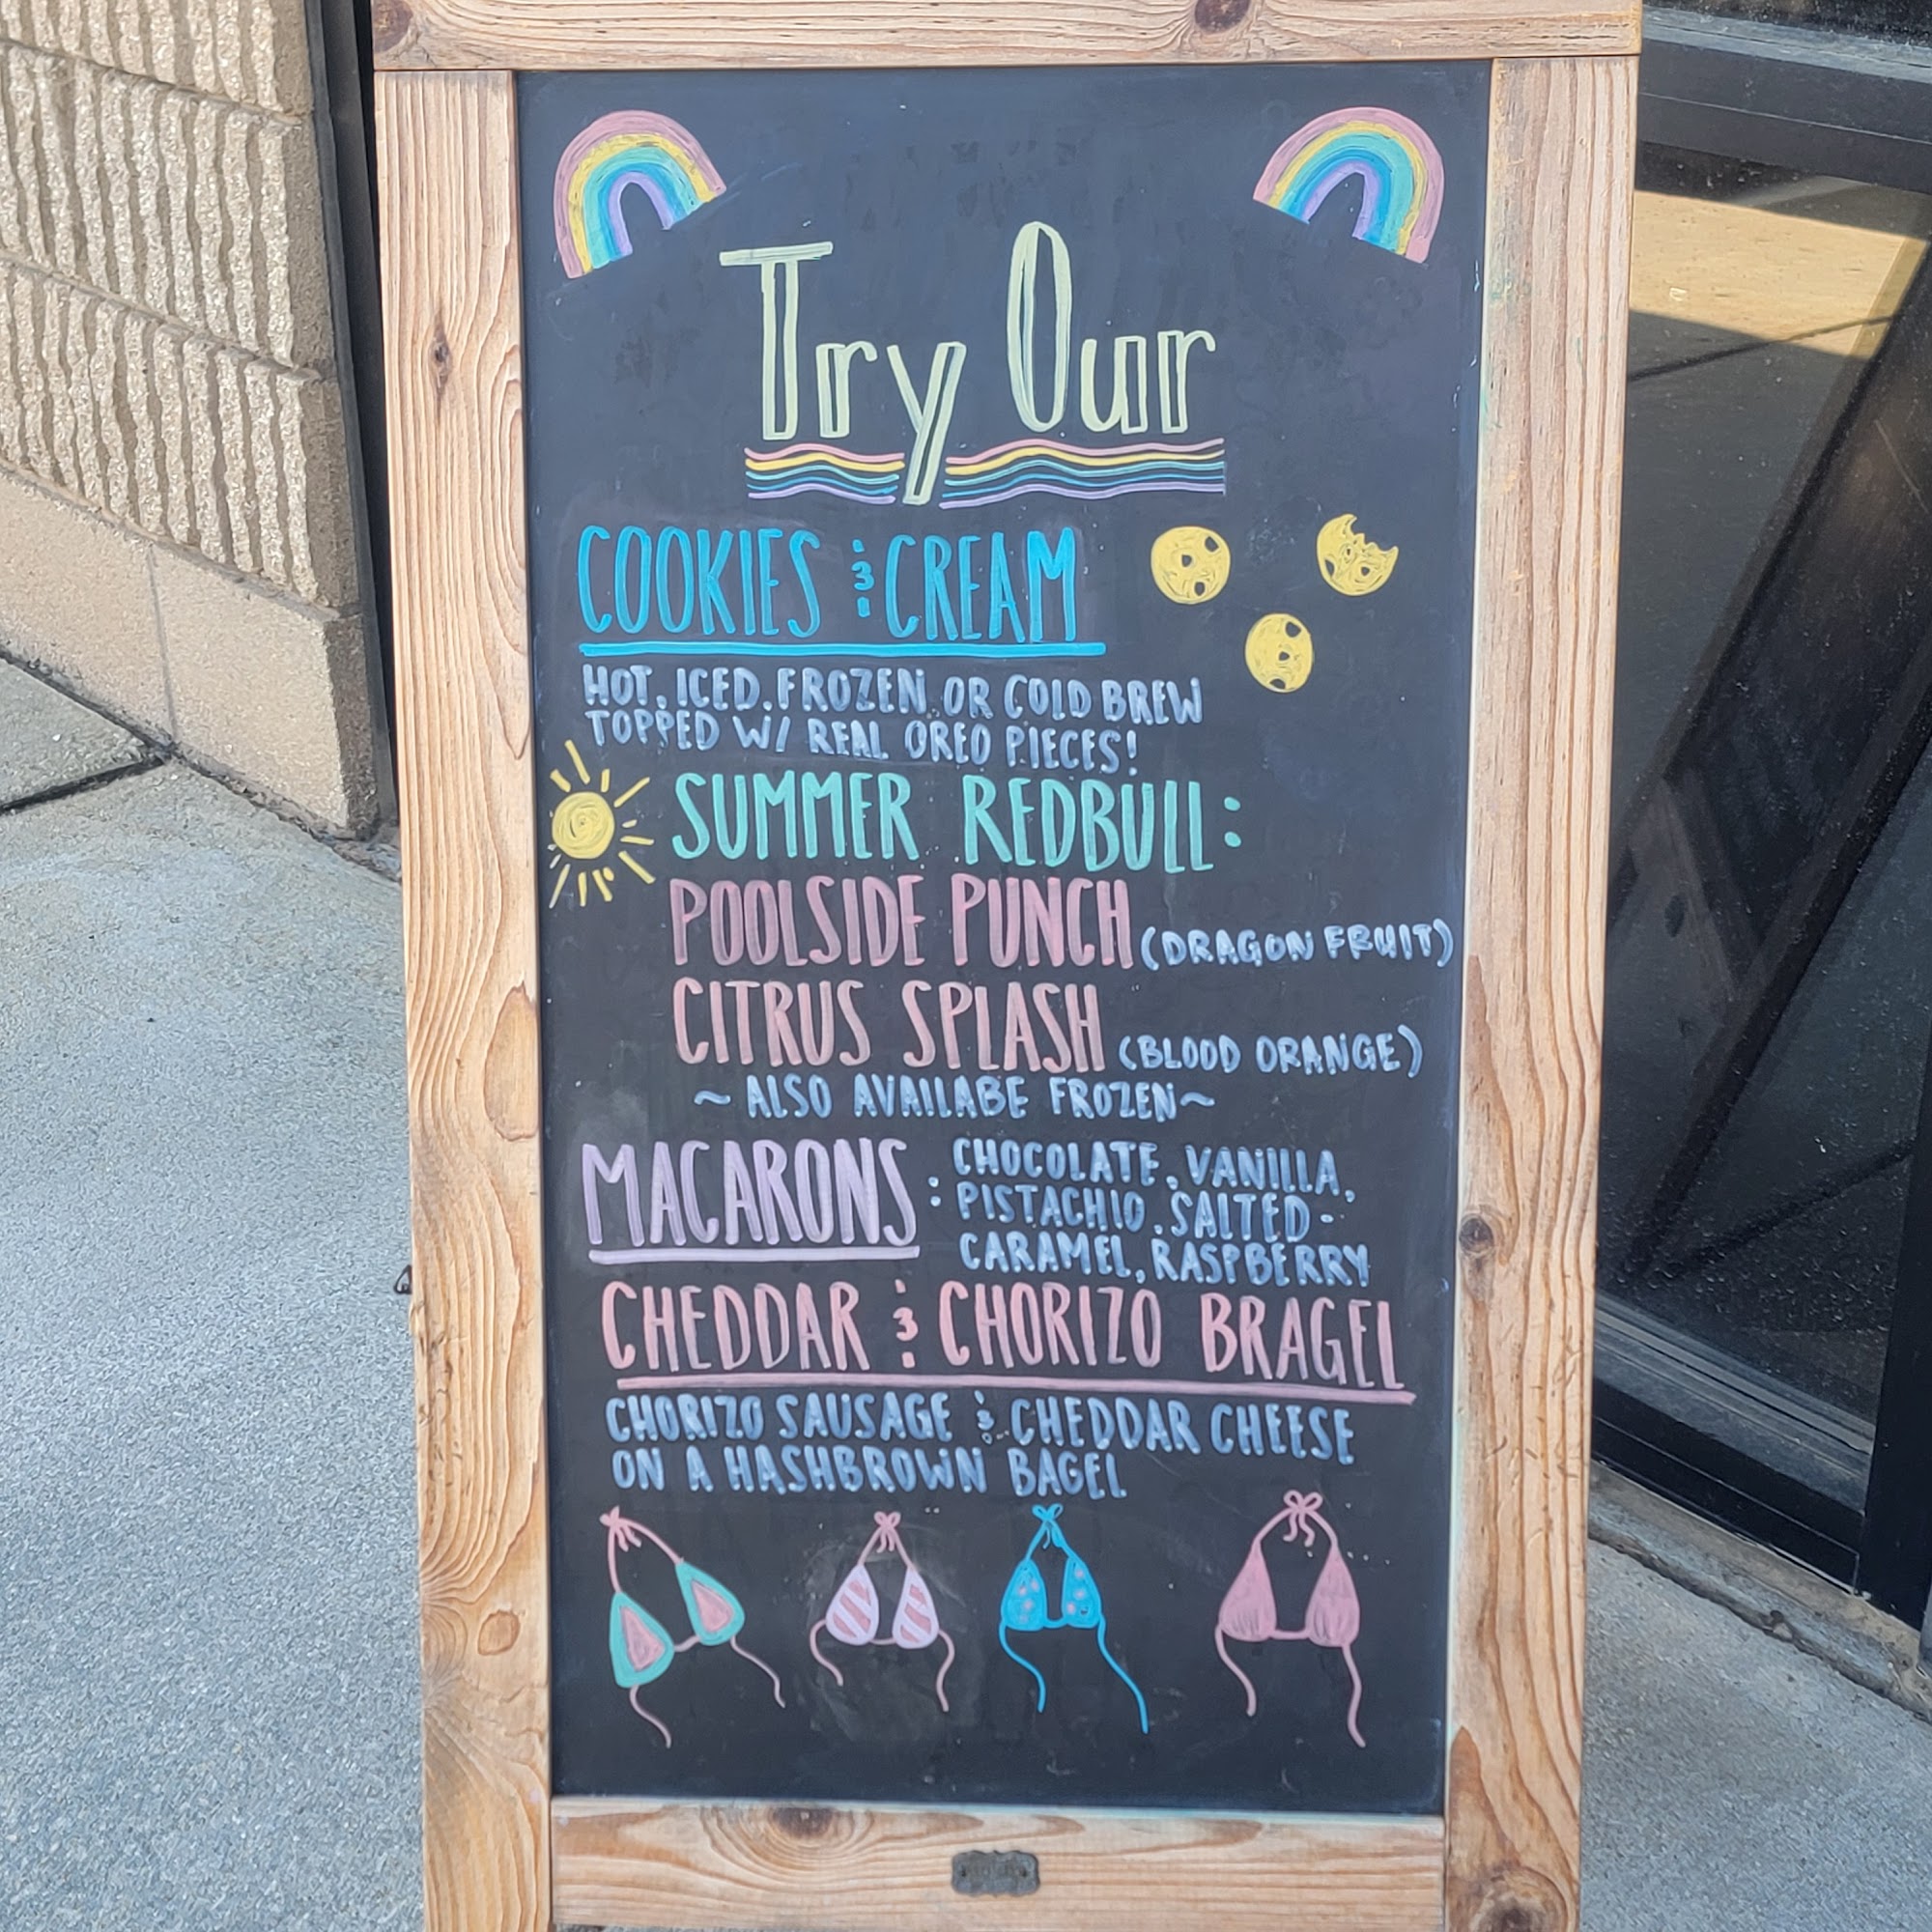 Try Our
COOKIES & CREAM
HOT, ICED, FROZEN OR COLD BREW
TOPPED W/ REAL OREO PIECES!
SUMMER REDBULL:
POOLSIDE PUNCH (DRAGON FRUIT)
CITRUS SPLASH (BLOOD ORANGE)
~ ALSO AVAILABE FROZEN ~
MACARONS: CHOCOLATE, VANILLA,
PISTACHIO, SALTED-
CARAMEL, RASPBERRY
CHEDDAR & CHORIZO BRAGEL
CHORIZO SAUSAGE & CHEDDAR CHEESE
ON A HASHBROWN BAGEL